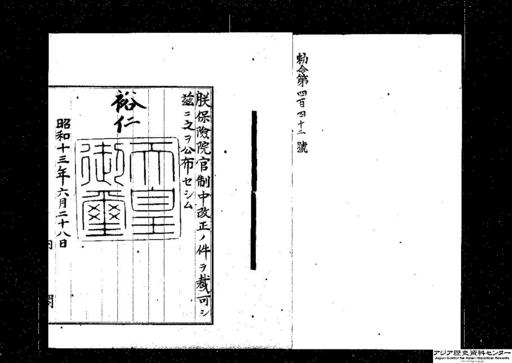 勅令第四百四十二號
朕保險院官制中改正ノ件ヲ裁可シ
茲ニ之ヲ公布セシム
裕仁
天皇御璽
昭和十三年六月二十八日
内閣
アジア歴史資料センター
Japan Center for Asian Historical Records